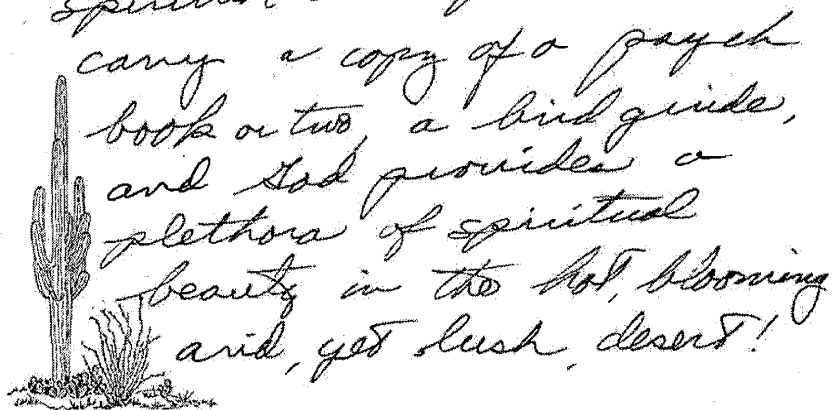 carry a copy of a psych
book or two, a bird guide,
and God provides a
plethora of spiritual
beauty in the hot, blooming
arid, yet lush, desert!